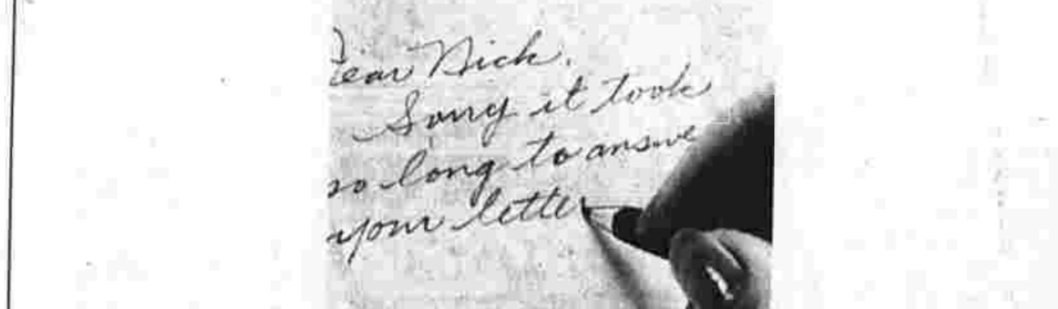 Dear Nick,
Sorry it took
so long to answe
your letter